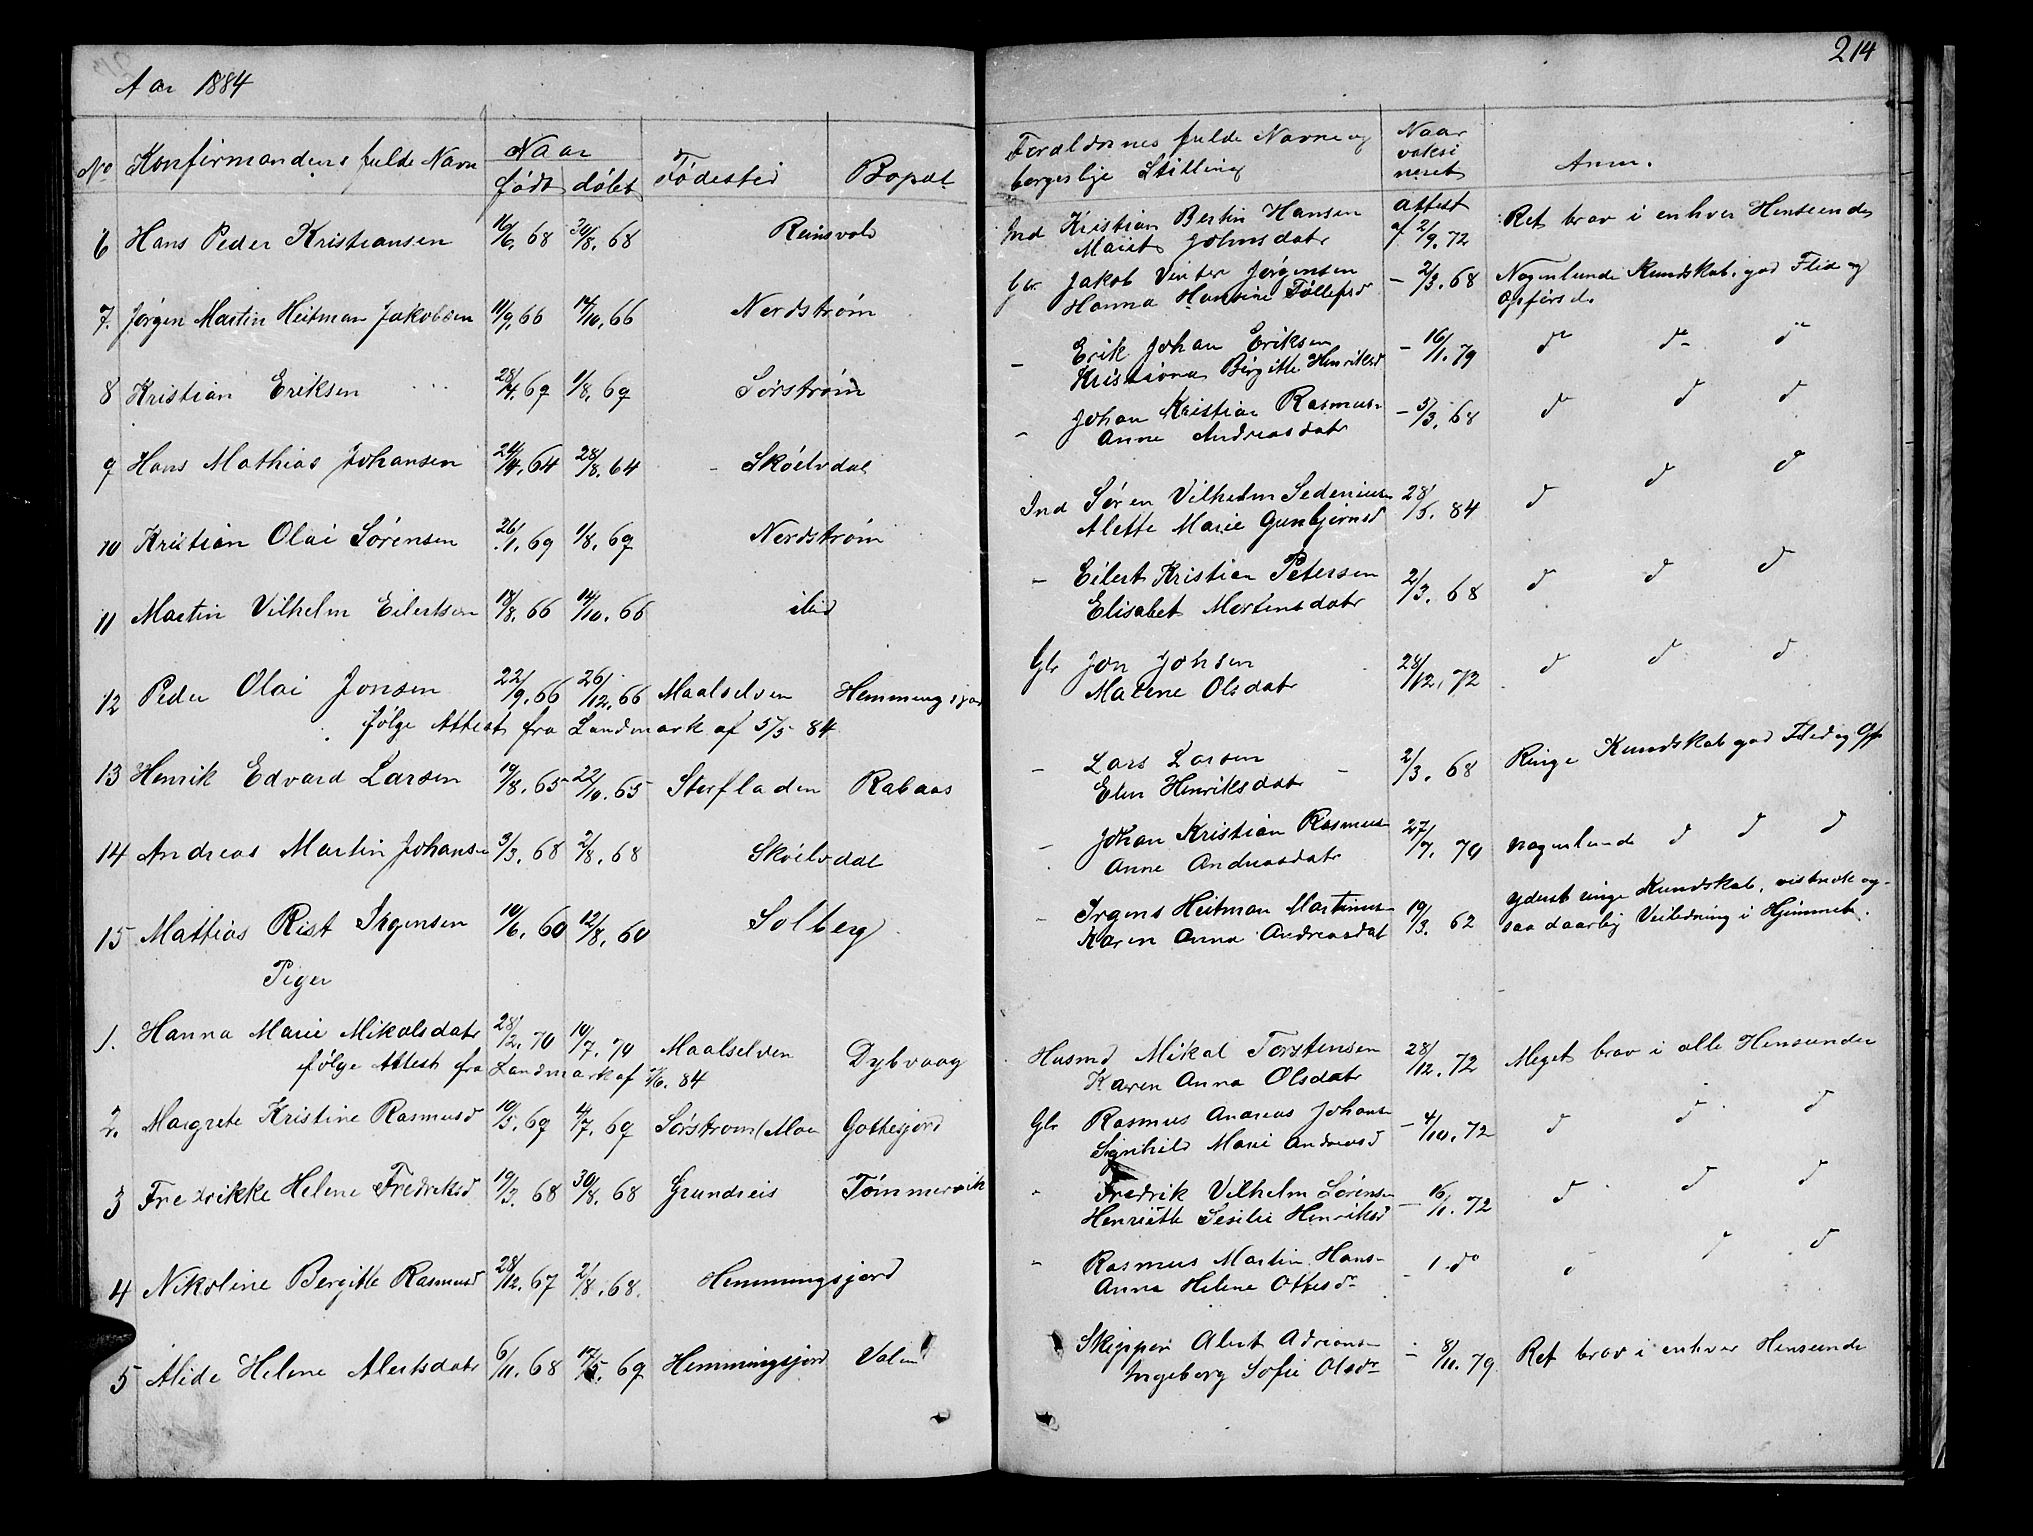 Aar 1884
No Konfirmandens fulde Navn Naar født døbt Fødested Bopæl
6 Hans Peder Kristiansen 16/6. 68 30/8. 68 Reinsvold
7. Jørgen Martin Heitman Jakobsen 11/9. 66 14/10. 66 Nordstrøm
8 Kristian Eriksen 28/4. 69 1/8. 69 Sørstrøm
9 Hans Mathias Johansen 24/4. 64 28/8. 64 Skøelvdal
10 Kristian Olai Sørensen 26/1. 69 1/8. 69 Nordstrøm
11 Martin Vilhelm Eilertsen 18/8. 66 14/10. 66 ibid
12 Peder Olai Jonsen 22/9. 66 26/12. 66 Maalselven Hemmingsjord
følge Attest fra Landmark af 5/5 84
13 Henrik Edvard Larsen 19/8. 65 22/10. 65 Storfladen Rabaas
14 Andreas Martin Johansen 3/3. 68 2/8. 68 Skøelvdal
15 Mathias Rist Irgensen 10/6. 60 12/8. 60 Solberg
Piger
1. Hanna Marie Mikalsdatr 28/2. 70 10/7. 70 Maalselven Dybvaag
følge Attest fra Landmark af 1/6. 84
2. Margrete Kristine Rasmusd 10/5. 69 4/7. 69 Sørstrøm/Moen Gottesjord
3 Fredrikke Helene Fredriksd 19/3. 68 30/8. 68 Grundreis Tømmervik
4 Nikoline Bergitte Rasmusd 28/12. 67 2/8. 68. Hemmingsjord
5 Alide Helene Alertsdatr 6/11. 68 17/5. 69 Hemmingsjord
214
Forældrenes fulde Navne og
borgerlige Stilling
Naar
vaksi
neret
Anm.
Ind Kristian Bertin Hansen
Marit Johnsdatr
attest
af 2/9. 72
Ret brav i enhver Henseende
Gbr Jakob Vinter Jørgensen
Hanna Hansine Tollefsd
- 2/3. 68 Nogenlunde Kundskab, god Flid og
Opførsel.
- Erik Johan Eriksen
Kristiana Birgitte Henriksd
- 16/11. 79 do do do
- Johan Kristian Rasmus-
Anne Andreasdatr
- 5/3. 68 d d d
Ind Søren Vilhelm Sedenius-
Alette Marie Gunbjørnsd
28/5. 84 d d d
- Eilert Kristian Petersen
Elisabet Mortensdatr
2/3. 68 d d d
Gbr Jon Johsen
Marene Olsdatr
28/12. 72 d d d
- Lars Larsen
Elen Henriksdatr
- 2/3. 68 Ringe Kundskab god Flid og Opf
- Johan Kristian Rasmus-
Anne Andreasdatr
27/7. 79 nogenlunde d d d
- Irgens Heitman Martinus-
Karen Anna Andreasdat
19/3. 62
yderst ringe Kundskab, vistnok og-
saa daarlig Veiledning i Hjemmet.
Husmd Mikal Torstensen
Karen Anna Olsdatr
28/12. 72 Meget brav i alle Henseender
Gbr Rasmus Andreas Johans-
Signhild Marie Andreasd
- 4/10. 72 d d d
- Fredrik Vilhelm Sørens-
Henriette Sesilie Henriksd
- 16/11. 72 d d d
- Rasmus Martin Hans-
Anna Helene Ottesdr
- 1 do d d
Skipper Alert Adrians-
Ingeborg Sofie Olsdr
- 8/11. 79 Ret brav i enhver Henseende